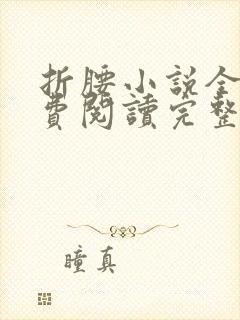 折腰小說全
費閱讀完整
瞳真